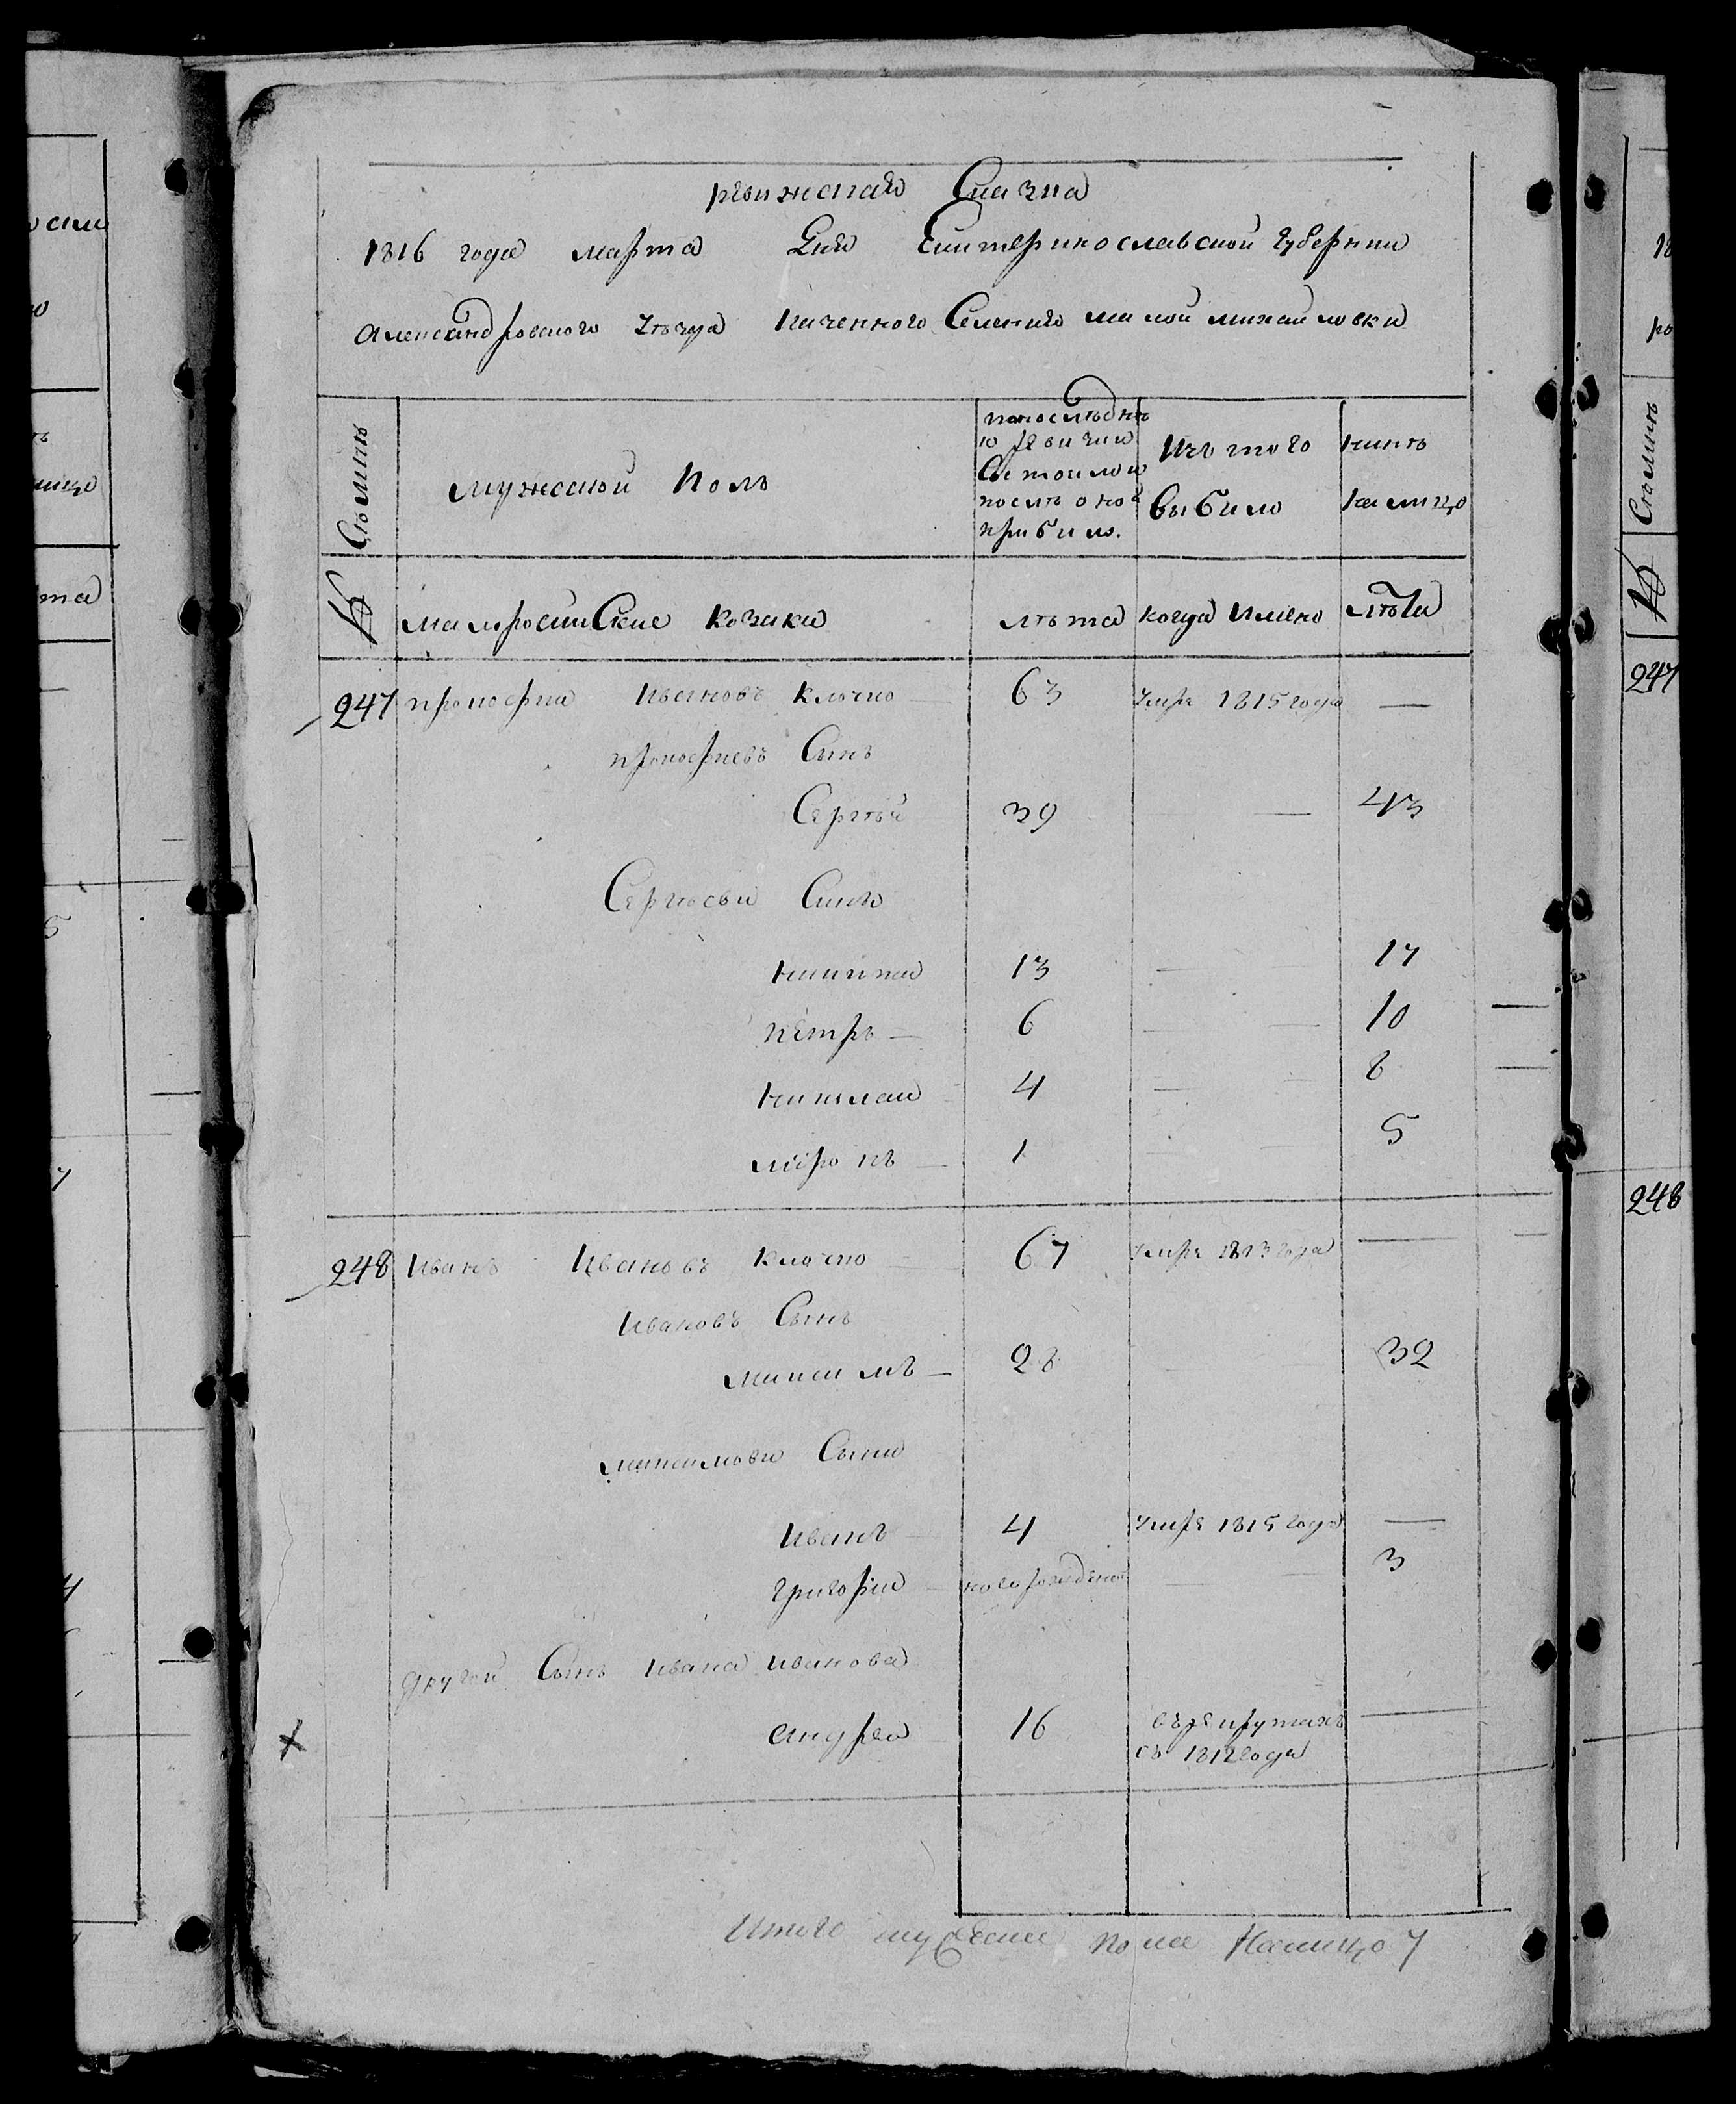 ревижская Сказка
1816 года марта Дня Екатеринославской губернии
Александровского уѣзда Казенного Селения малой михайловки
Сѣмьи
мужеской полъ
по последнѣ
ю ревизии
Состояло и
послѣ оной
прибыло.
Изъ того
выбыло
нинѣ
на лицо
№ малоросийские козаки лѣта когда имено лѣта
247 прокофий Ивановъ Клочко 63 умре 1815 года —
прокофиевъ Сынъ
Сергѣй 39 — 43
Сергѣеви Сини
никита 13 — 17
петръ — 6 — 10
николай 4 — 8
миронъ — 1 5
248 Иванъ Ивановъ Клочко 67 умре 1813 года —
Ивановъ Сынъ
максимъ — 28 32
максимови Сыни
Иванъ 4 умре 1815 года —
григорий новорожденой — 3
другой Сынъ ивана иванова
андрей 16 въ рекрутахъ —
съ 1812 года
Итого мужеска пола налицо 7
247
248